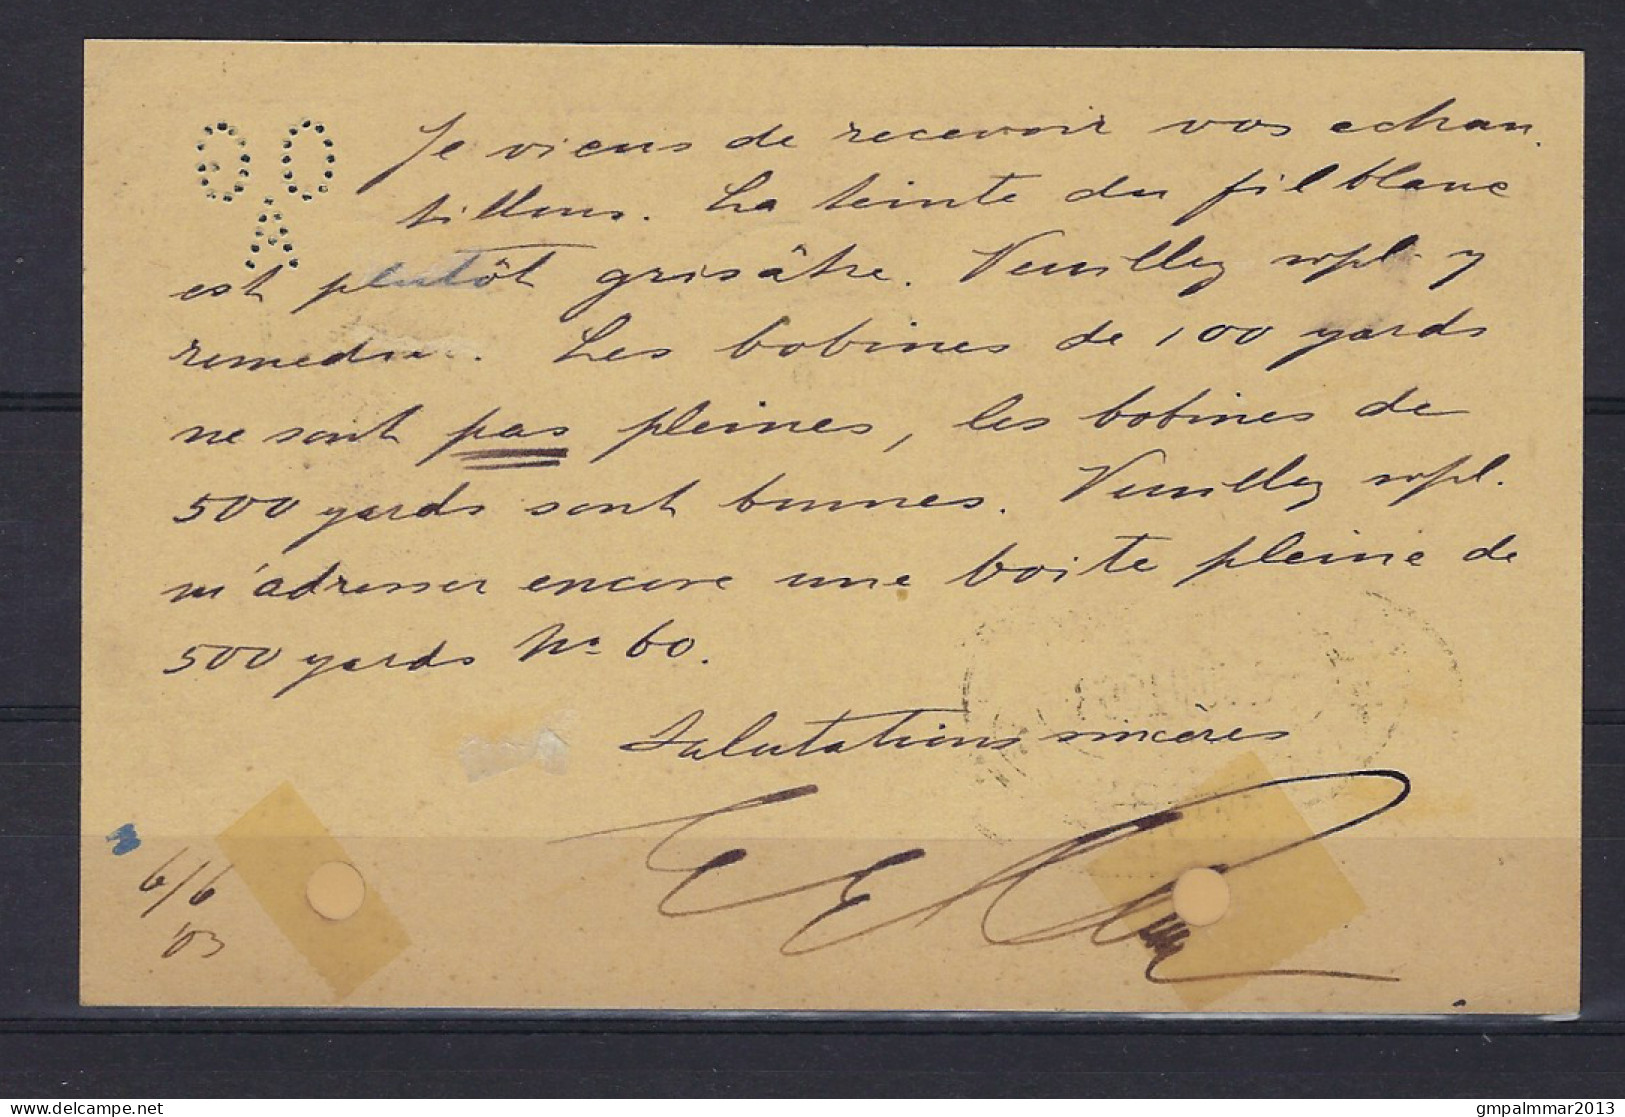 G O
A
Je viens de recevoir vos echan-
tillons. La teinte du fil blanc
est plutôt grisâtre. Veuillez svpl. y
remedier. Les bobines de 100 yards
ne sont pas pleines, les bobines de
500 yards sont bonnes. Veuillez svpl.
m'adresser encore une boite pleine de
500 yards No 60.
Salutations sincères
6/6
'03
delcampe.net
gmpalmmar2013